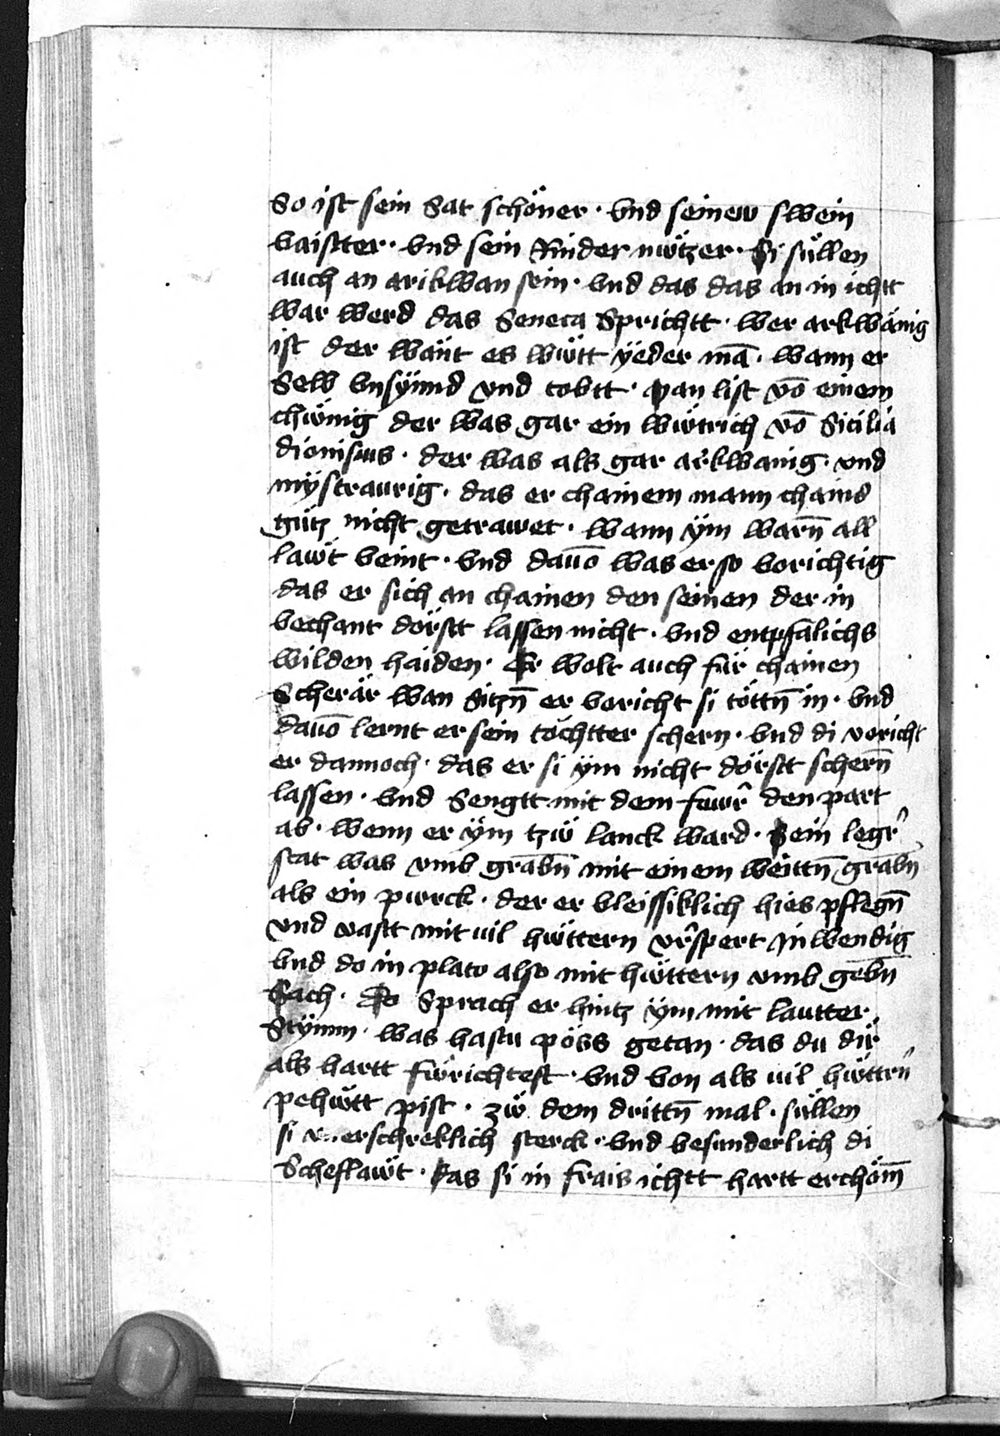 So ist sein Sat schöner · vnd seinew swein
vaistter · vnd sein Rinder nẅtzer · Si süllen
auch an arikwan sein · vnd das das an in ichtt
war werd das Seneca Sprichtt · wer arkwänig
ist der wänt es wẅtt yëder mā · wann er
Selb vnsÿnnd vnd tobtt · Man list vō einem
chẅnig der was gar ein wẅtrich vō Sicilia
dionisius · der was als gar arkwanig · vnd
mÿstraurig · das er chainem mann chains
gutz nicht getrawet · wann ÿm warn̄ all
lawt veint · vnd dauō was er so vorichtig
das er sich an chainen den seinen der in
bechant dörstt lassen nicht · vnd entpfalichs
wilden haiden · Er wolt auch für chainen
Scherär wan sitzn̄ er voricht si töttn̄ in · vnd
dauō lernt er sein töchtter schern · vnd di voricht
er dannoch · das er si ÿm nicht dörstt schern̄
lassen · vnd Sengtt mit dem fewr̄ den part
ab · wenn er ÿm tzẅ lanck ward · Sein legr̄
stat was vmb grabn̄ mit einem weittn̄ grabn̄
als ein purck · der er vleissiklich hies pflegn̄
vnd vastt mit uil hẅttern vr̄spert Inwendig
vnd do in plato also mit hẅttern vmb gebn̄
Sach · Do Sprach er hintz ÿm mit lautter
Stÿmm · was hastu pöss getan · das du dir
als hartt fürichtest · vnd von als uil hẅttrn̄
pehẅtt pist · zẅ dem drittn̄ mal · süllen
si erschreklich sterck · vnd besunderlich di
Scheflawt · das si in frais ichtt hartt erchöm̄